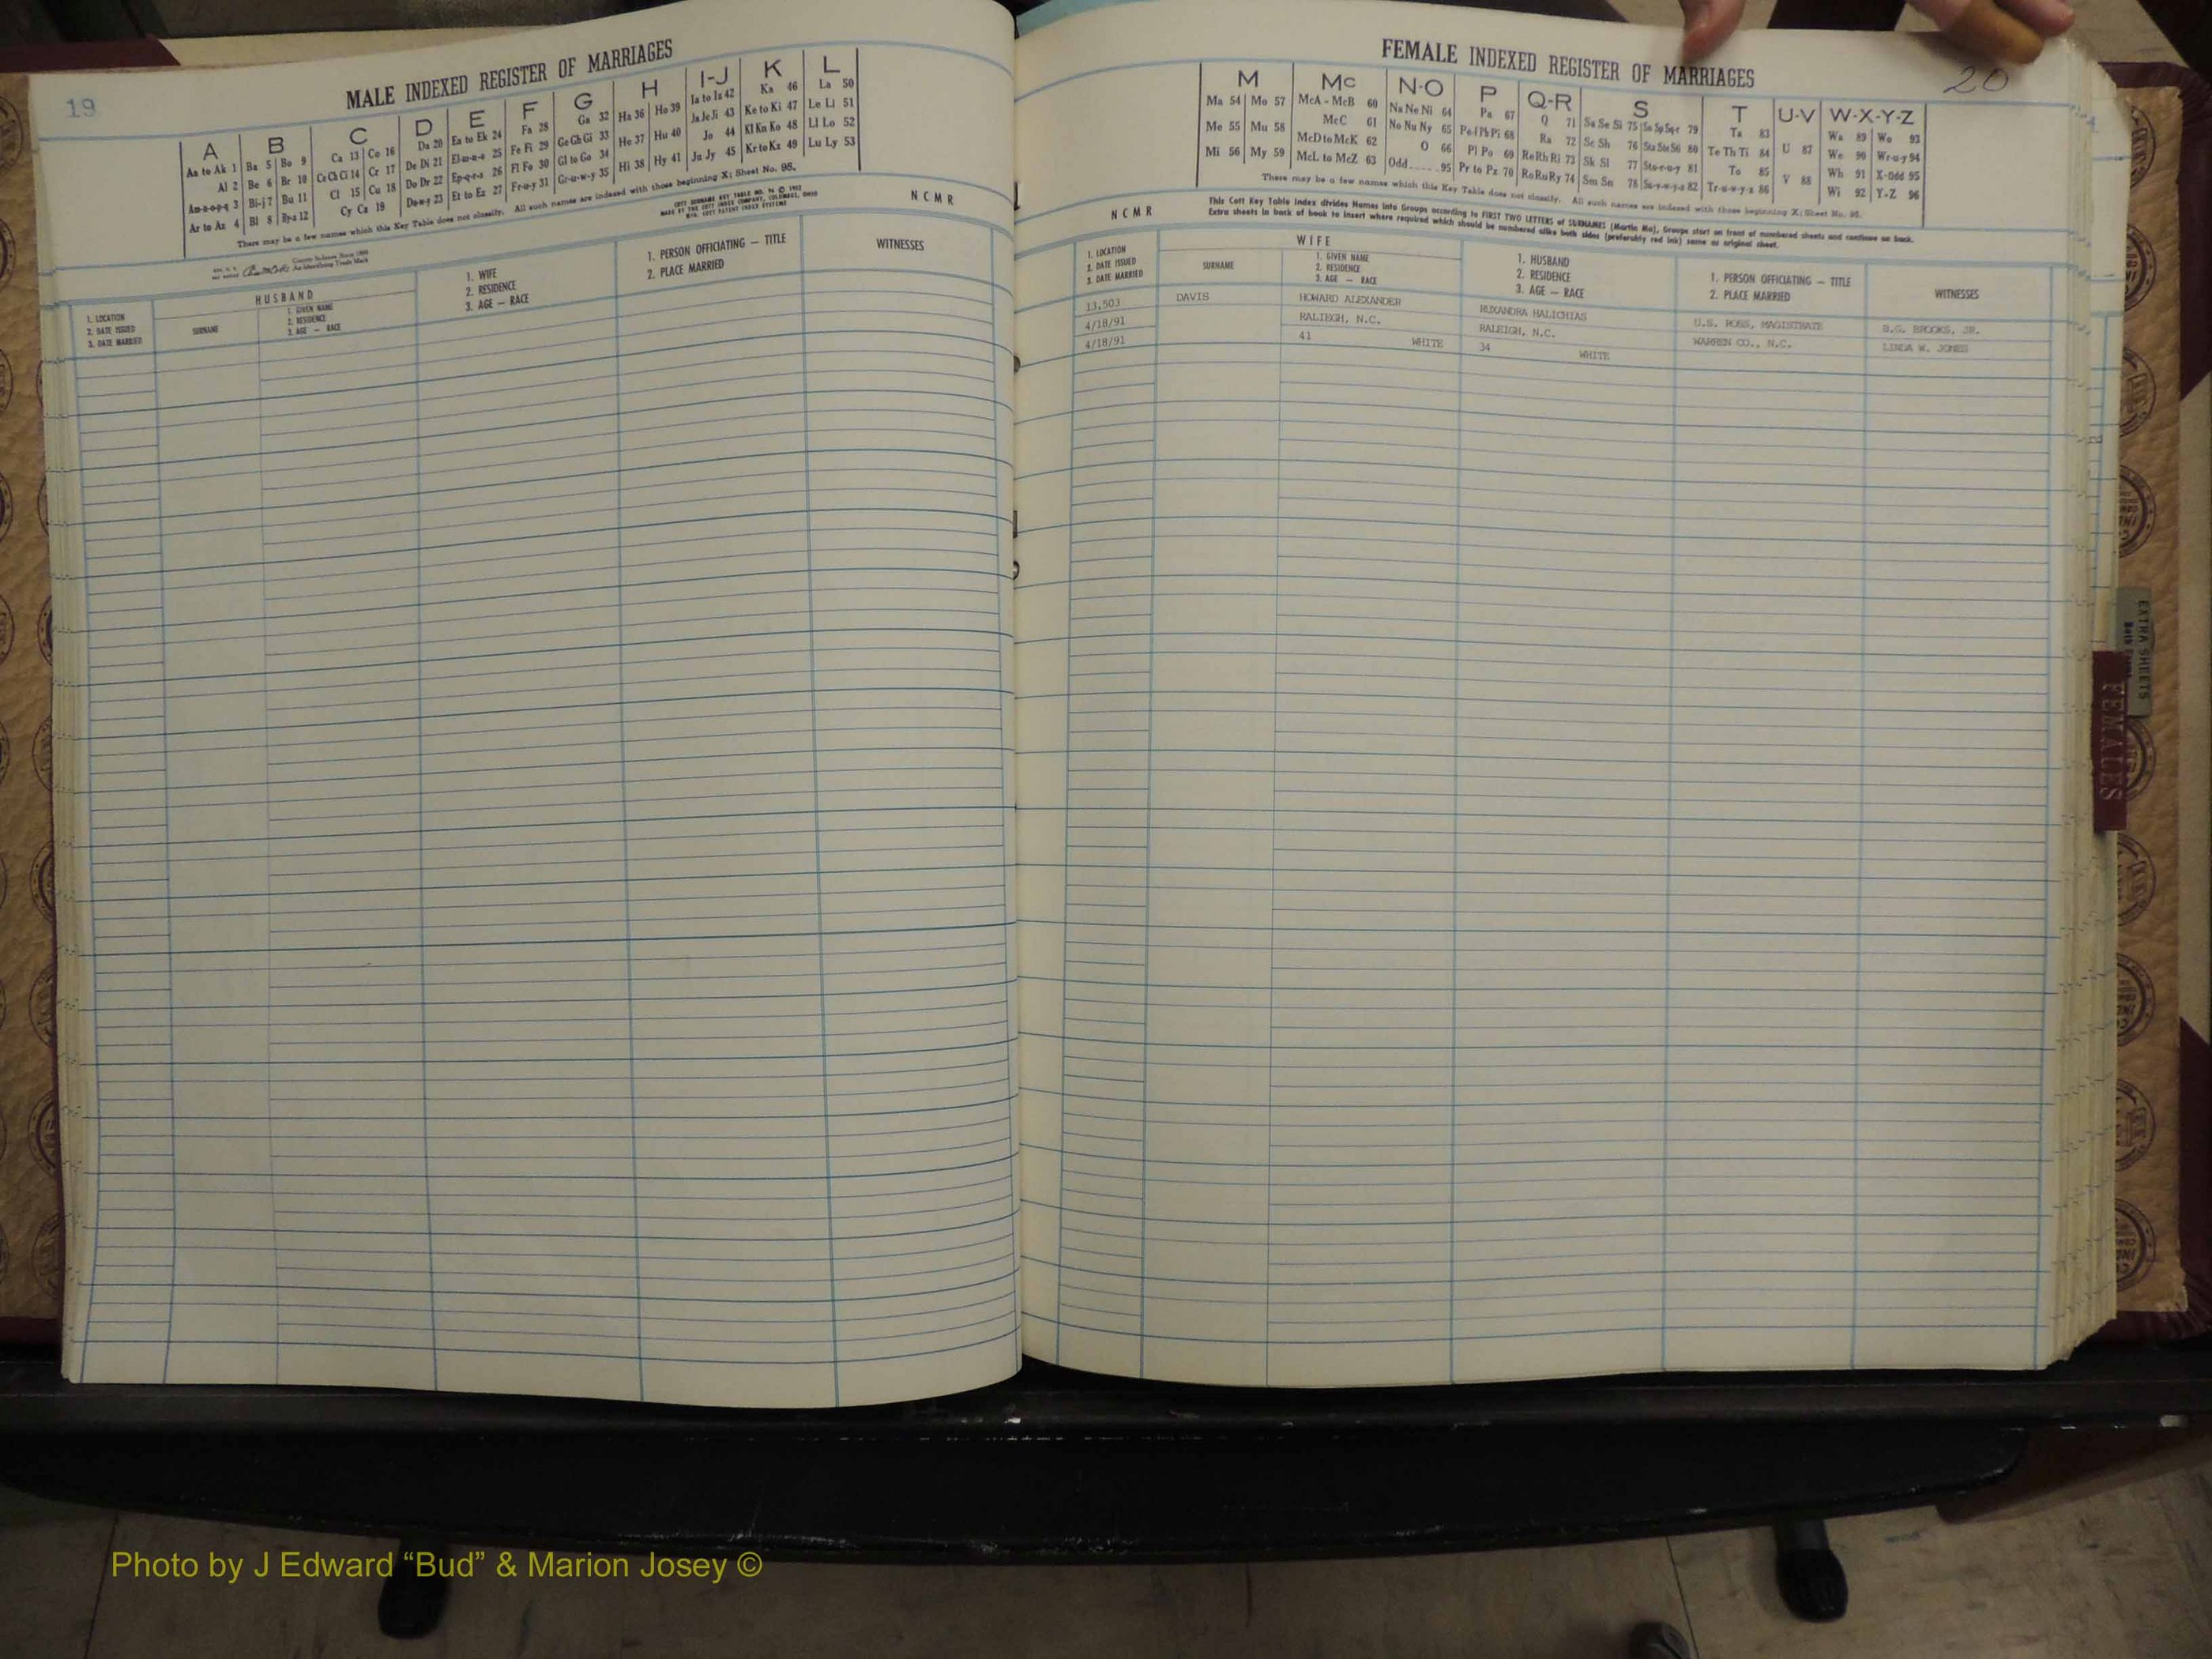 19
MALE INDEXED REGISTER OF MARRIAGES
A B C D E F G H I-J K L
Aa to Ak 1 Ba 5 Bo 9 Ca 13 Co 16 Da 20 Ea to Ek 24 Fa 28 Ga 32 Ha 36 Ho 39 Ia to Iz 42 Ka 46 La 50
Al 2 Be 6 Br 10 Ce Ch Ci 14 Cr 17 De Di 21 El-m-n-o 25 Fe Fi 29 Ge Gh Gi 33 He 37 Hu 40 Ja Je Ji 43 Ke to Ki 47 Le Li 51
Am-n-o-p-q 3 Bi-j 7 Bu 11 Cl 15 Cu 18 Do Dr 22 Ep-q-r-s 26 Fl Fo 30 Gl to Go 34 Hi 38 Hy 41 Jo 44 Kl Kn Ko 48 Ll Lo 52
Ar to Az 4 Bl 8 By-z 12 Cy Cz 19 Du-w-y 23 Et to Ez 27 Fr-u-y 31 Gr-u-w-y 35 Ju Jy 45 Kr to Kz 49 Lu Ly 53
There may be a few names which this Key Table does not classify. All such names are indexed with those beginning X; Sheet No. 95.
COTT SURNAME KEY TABLE NO. 96 © 1952
MADE BY THE COTT INDEX COMPANY, COLUMBUS, OHIO
MFR. COTT PATENT INDEX SYSTEMS
N C M R
County Indexes Since 1888
An Identifying Trade Mark
1. LOCATION
2. DATE ISSUED
3. DATE MARRIED
HUSBAND
SURNAME
1. GIVEN NAME
2. RESIDENCE
3. AGE — RACE
1. WIFE
2. RESIDENCE
3. AGE — RACE
1. PERSON OFFICIATING — TITLE
2. PLACE MARRIED
WITNESSES
FEMALE INDEXED REGISTER OF MARRIAGES
20
M Mc N-O P Q-R S T U-V W-X-Y-Z
Ma 54 Mo 57 McA - McB 60 Na Ne Ni 64 Pa 67 Q 71 Sa Se Si 75 So Sp Sq-r 79 Ta 83 U 87 Wa 89 Wo 93
Me 55 Mu 58 McC 61 No Nu Ny 65 Pe-f Ph Pi 68 Ra 72 Sc Sh 76 Sta Ste Sti 80 Te Th Ti 84 V 88 We 90 Wr-u-y 94
Mi 56 My 59 McD to McK 62 O 66 Pl Po 69 Re Rh Ri 73 Sk Sl 77 Sto-r-u-y 81 To 85 Wh 91 X-Odd 95
McL to McZ 63 Odd 95 Pr to Pz 70 Ro Ru Ry 74 Sm Sn 78 Su-v-w-y-z 82 Tr-u-w-y-z 86 Wi 92 Y-Z 96
There may be a few names which this Key Table does not classify. All such names are indexed with those beginning X; Sheet No. 95.
This Cott Key Table Index divides Names into Groups according to FIRST TWO LETTERS of SURNAMES (Martin Ma), Groups start on front of numbered sheets and continue on back.
Extra sheets in back of book to insert where required which should be numbered alike both sides (preferably red ink) same as original sheet.
N C M R
1. LOCATION
2. DATE ISSUED
3. DATE MARRIED
WIFE
SURNAME
1. GIVEN NAME
2. RESIDENCE
3. AGE — RACE
1. HUSBAND
2. RESIDENCE
3. AGE — RACE
1. PERSON OFFICIATING — TITLE
2. PLACE MARRIED
WITNESSES
13,503 DAVIS HOWARD ALEXANDER RUXANDRA HALICHIAS U.S. ROSS, MAGISTRATE B.G. BROOKS, JR.
4/18/91 RALIEGH, N.C. RALEIGH, N.C. WARREN CO., N.C. LINDA W. JONES
4/18/91 41 WHITE 34 WHITE
EXTRA SHEETS
FEMALES
Photo by J Edward “Bud” & Marion Josey ©